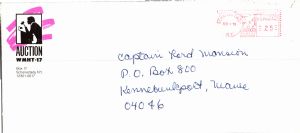 AUCTION
WMHT·17
Box 17
Schenectady NY
12301-0017
Captain Lord Mansion
P.O. Box 800
Kennebunkport, Maine
04046